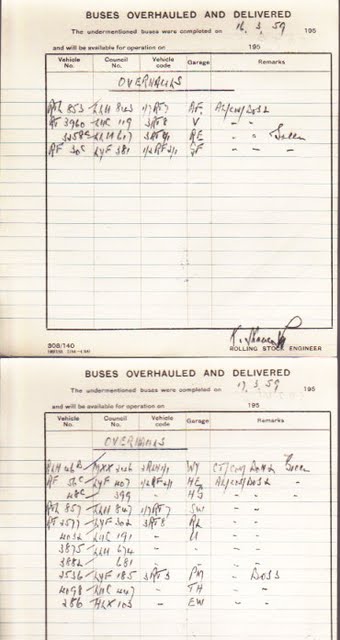 BUSES OVERHAULED AND DELIVERED
The undermentioned buses were completed on 16.3.59 195
and will be available for operation on 195
Vehicle No. Council No. Vehicle code Garage Remarks
OVERHAULS
RTL 853 LLU 843 1/7RT7 AF
RT 3960 LUC 119 3RT8 V " "
3258C LLU 617 RE " " Green
RF 30C LYF 381 1/2RF2/1 GF " " "
ROLLING STOCK ENGINEER
508/140
BUSES OVERHAULED AND DELIVERED
The undermentioned buses were completed on 17.3.59 195
and will be available for operation on 195
Vehicle No. Council No. Vehicle code Garage Remarks
OVERHAULS
RLH 46B MXX 246 2RLH1/1 WY Green
RF 56C LYF 407 1/2RF2/1 HE
48C 399 " HG " "
RTL 857 LLU 847 1/7RT7 SW " "
RT 2577 LYF 302 3RT8 RL " "
4032 LUC 191 " U " "
3875 LLU 674 " " " "
3882 681 " " " "
2536 LYF 185 3RT3 PM " DOSS
4098 LUC 447 " TH " "
286 HLX 103 " EW " "